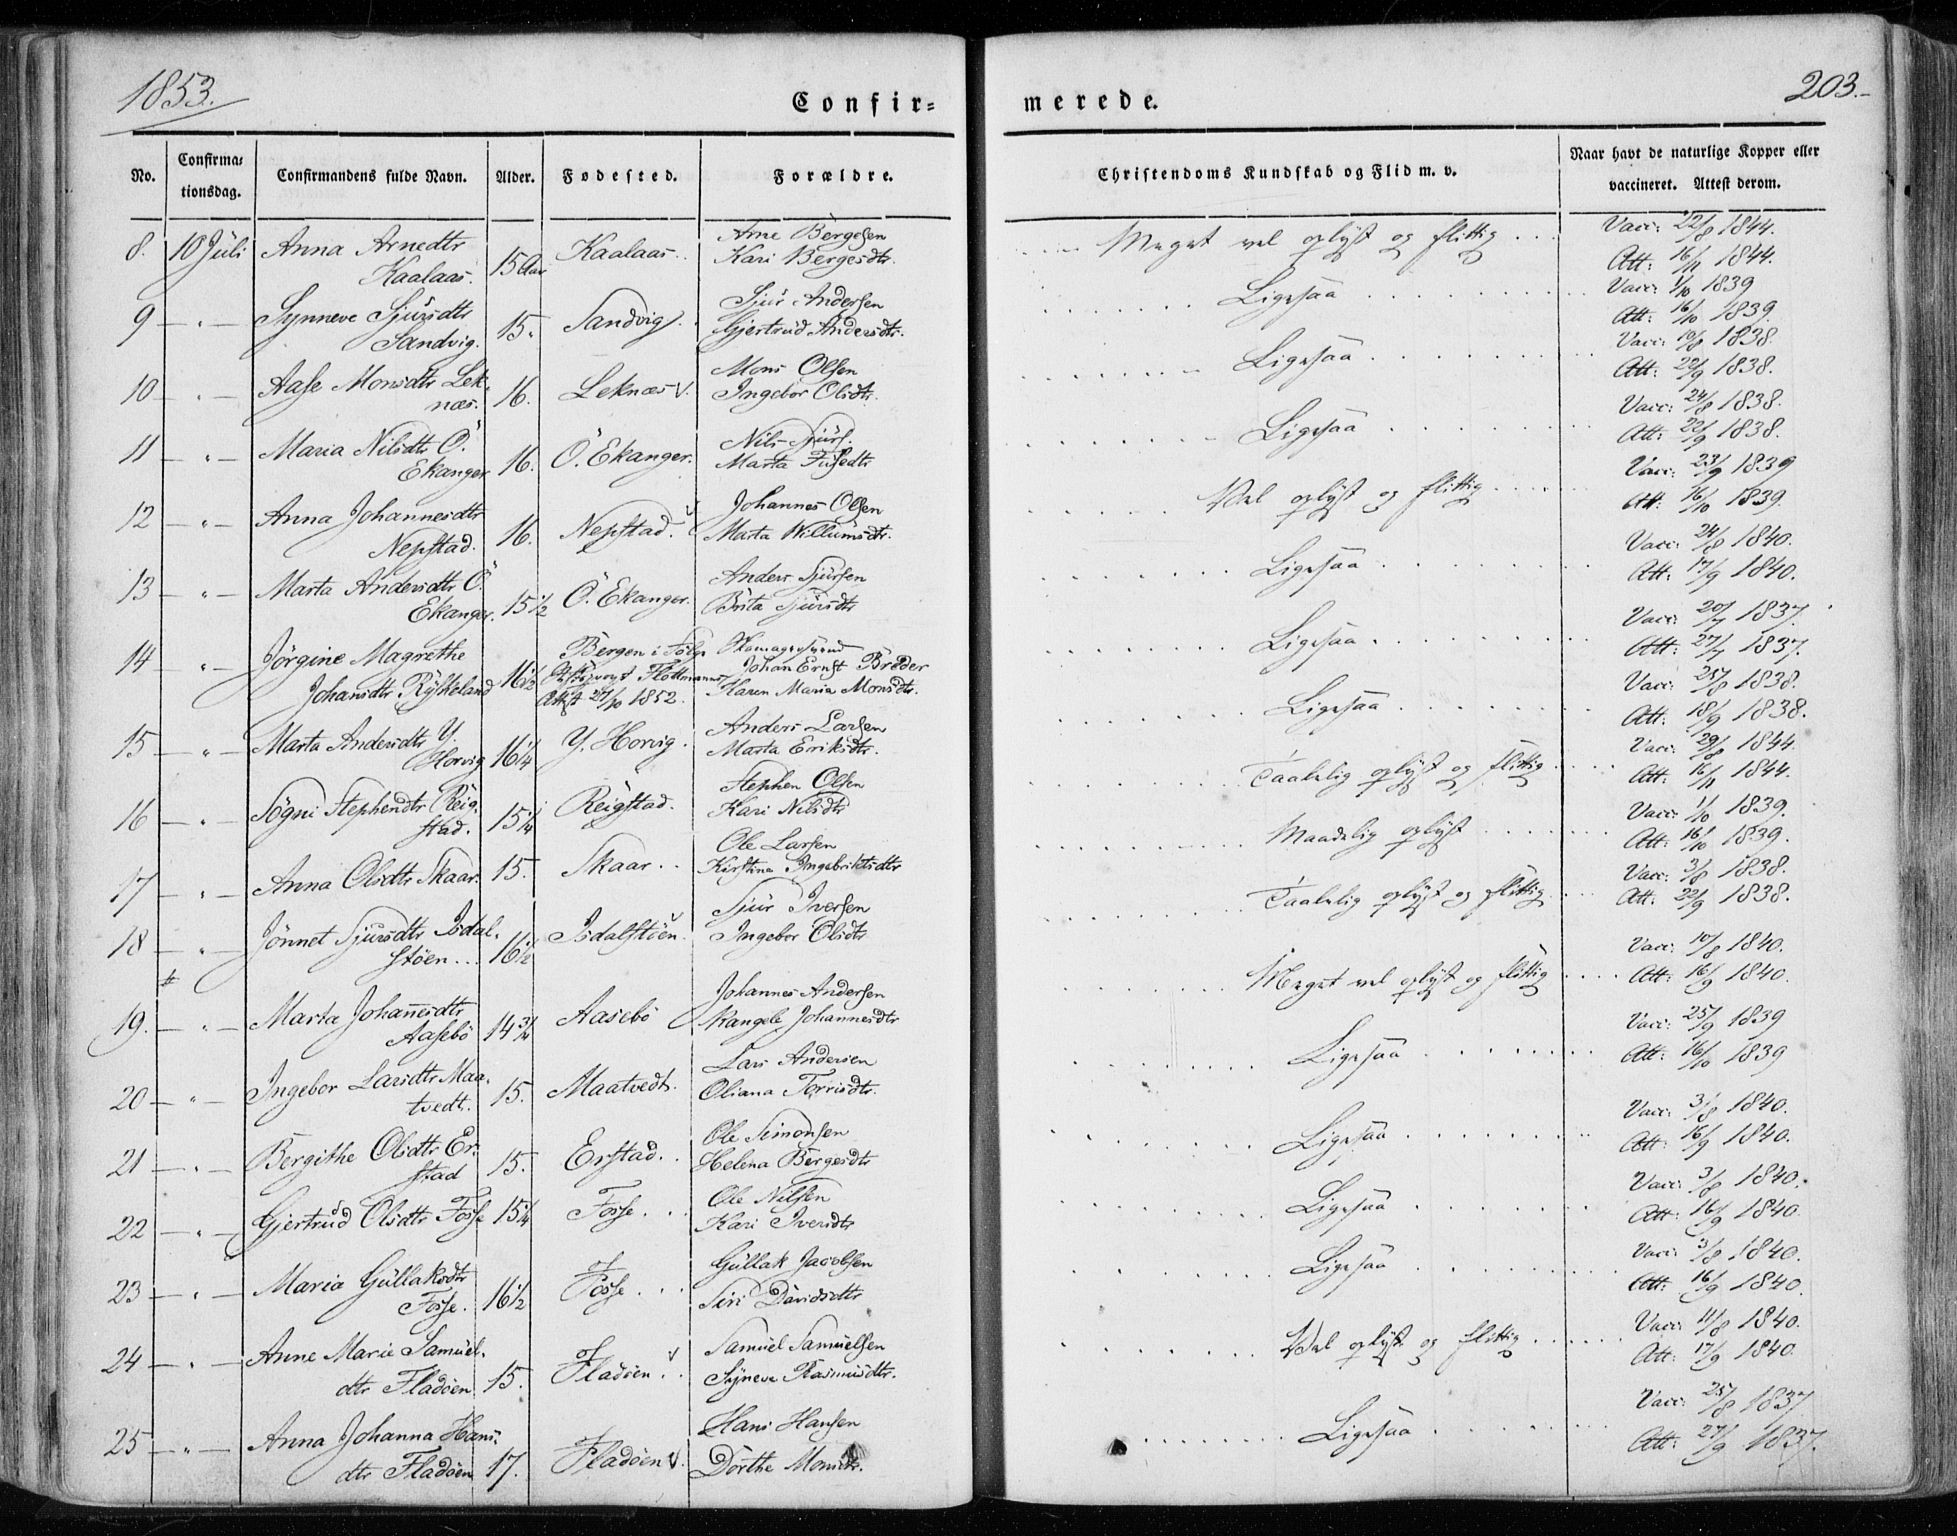 1853.
203.-
Confir=
merede.
No. Confirma=tionsdag. Confirmandens fulde Navn. Alder. Fødested. Forældre. Christendoms Kundskab og Flid m. v. Naar havt de naturlige Kopper eller vaccineret. Attest derom.
8. 10 Juli Anna Arnedtr 15 Aar Kaalaas. Arne Bergesen Meget vel oplyst og flittig Vacc: 22/8 1844.
Kaalaas. Kari Bergesdtr. Att: 16/11 1844.
9 — " — Synneve Sjursdtr 15. Sandvig. Sjur Andersen Ligesaa Vacc: 1/10 1839
Sandvig. Gjertrud Andersdtr. Att: 16/10 1839.
10 — " — Aase Monsdtr Lek- 16. Leknæs v. Mons Olsen Ligesaa Vacc: 10/8 1838.
næs. Ingebor Olsdtr. Att: 22/9 1838.
11 — " — Maria Nilsdtr Ö. 16. Ö. Ekanger. Nils Sjurs. Ligesaa Vacc: 24/8 1838.
Ekanger Marta Fusedtr Att: 22/9 1838.
12 — " — Anna Johannesdtr 16. Nepstad. v Johannes Olsen Vel oplyst og flittig Vacc: 23/9 1839
Nepstad. Marta Willumsdtr. Att: 16/10 1839.
13 — " — Marta Andersdtr Ö. 15 1/2 Ö. Ekanger. Anders Sjursen Ligesaa Vacc: 24/8 1840.
Ekanger. Brita Sjursdtr Att: 17/9 1840.
14 " — Jörgine Magrethe 16 1/2 Bergen i Følge Ligesaa Vacc: 20/7 1837.
Johansdtr Rÿkkeland Flottmanns Johan Ernst Breder Att: 27/7 1837.
Attest 27/10 1852. Karen Maria Monsdtr.
15 — " — Marta Andersdtr Y. 16 1/4 Y. Horvig. Anders Larsen Ligesaa Vacc: 25/8 1838.
Horvig Marta Eriksdtr. Att: 18/9 1838.
16 — " — Sögni Stephensdtr Reig- 15 1/4 Reigstad. Stephen Olsen Taalelig oplyst og flittig Vacc: 29/8 1844.
stad. Kari Nilsdtr Att: 16/11 1844.
17 — " — Anna Olsdtr Skaar. 15. Skaar. Ole Larsen Maadelig oplyst Vacc: 1/10 1839.
Kirstina Ingebriktsdtr Att: 16/10 1839.
18 — " — Jönnet Sjursdtr Isdal- 16 1/2 Isdalstöen. v Sjur Iversen Taalelig oplyst og flittig Vacc: 3/8 1838.
stöen. Ingebor Olsdtr Att: 22/9 1838.
#
19. — " — Marta Johannesdtr 14 3/4 Aasebö Johannes Andersen Meget vel oplyst og flittig Vacc: 10/8 1840.
Aasebö Rangele Johannesdtr Att: 16/9 1840.
20 — " — Ingebor Larsdtr Maa- 15. Maatvedt. Lars Andersen Ligesaa Vacc: 25/9 1839
tvedt. Oliana Terrisdtr. Att: 16/10 1839
21 — " — Bergithe Olsdtr Er- 15. Erstad. Ole Simonsen Ligesaa Vacc: 3/8 1840.
stad Helena Bergesdtr Att: 16/9 1840.
22 — " — Gjertrud Olsdtr Fosse 15 1/4 Fosse. Ole Nilsen Ligesaa Vacc: 3/8 1840.
Kari Iversdtr Att: 16/9 1840.
23 — " — Maria Gullaksdtr 16 1/2 Fosse. Gullak Jacobsen Ligesaa Vacc: 3/8 1840.
Fosse. Siri Davidsdtr Att: 16/9 1840.
24 — " — Anne Marie Samuel- 15. Fladöen. v Samuel Samuelsen Vel oplyst og flittig Vacc: 11/8 1840.
dtr Fladöen Syneve Rasmusdtr. Att: 17/9 1840.
25 — " — Anna Johanna Hans- 17. Fladöen v. Hans Hansen Ligesaa Vacc: 25/8 1837
dtr Fladöen Dorthe Monsdtr. Att: 27/9 1837.